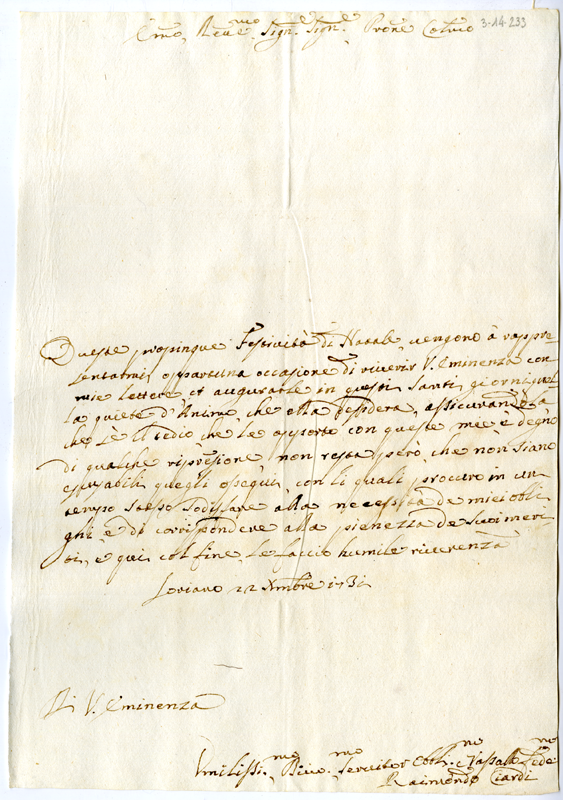 Emo, Reve.mo Sign.e Sign.e Prone Colmo 3-14-233
Queste propinque Festività di Natale, vengono à rappre
sentarmi opportuna occasione di riverir V. Eminenza con
mie lettere, et augurarle in questi Santi giorni quel
la quiete d'Animo, che ella desidera, assicurandola
che se il tedio che Le apporto con queste mee è degno
di qualche riprensione, non resta però, che non siano
scusabili quegli ossequi, con li quali procuro in un
tempo stesso sodisfare alla necessità de miei obli
ghi, e di corrispondere alla pienezza de Suoi meri
ti, e qui col fine, Le faccio humile riverenza
Soriano 22 Xmbre 1731
Di V. Eminenza
Umilissi.mo Divo.mo Servitor Obbl.mo e Vassallo Fede.mo
Raimondo Ciardi